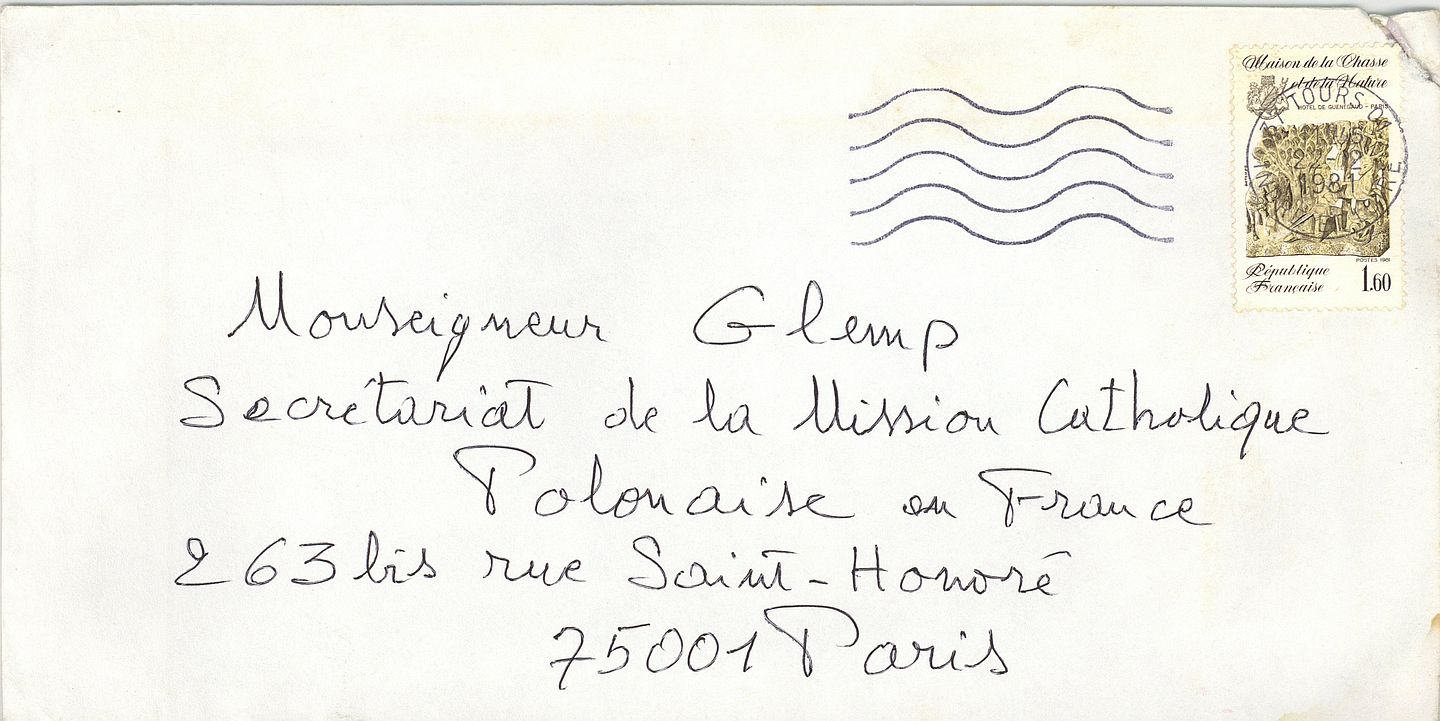 Maison de la Chasse
et de la Nature
HOTEL DE GUENEGAUD - PARIS
TOURS
22-12
1981
POSTES 1981
République
Française
1.60
Monseigneur Glemp
Secrétariat de la Mission Catholique
Polonaise en France
263 bis rue Saint-Honoré
75001 Paris